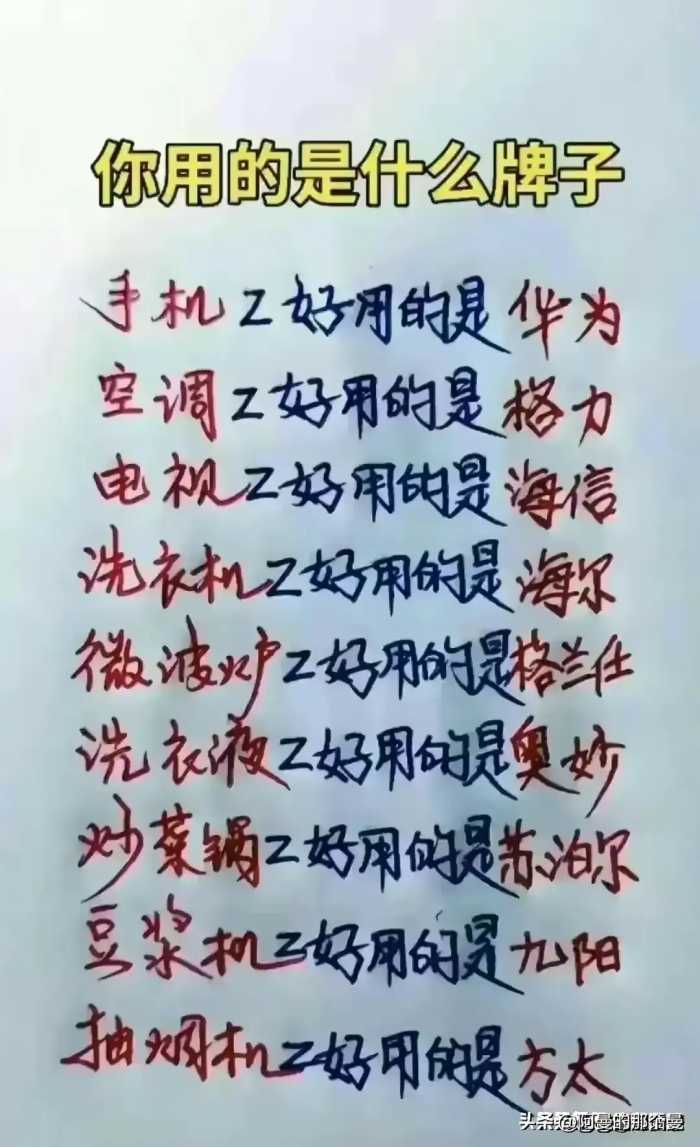 你用的是什么牌子
手机Z好用的是华为
空调Z好用的是格力
电视Z好用的是海信
洗衣机Z好用的是海尔
微波炉Z好用的是格兰仕
洗衣液Z好用的是奥妙
炒菜锅Z好用的是苏泊尔
豆浆机Z好用的是九阳
抽烟机Z好用的是方太
头条 @阿曼的那蒳曼